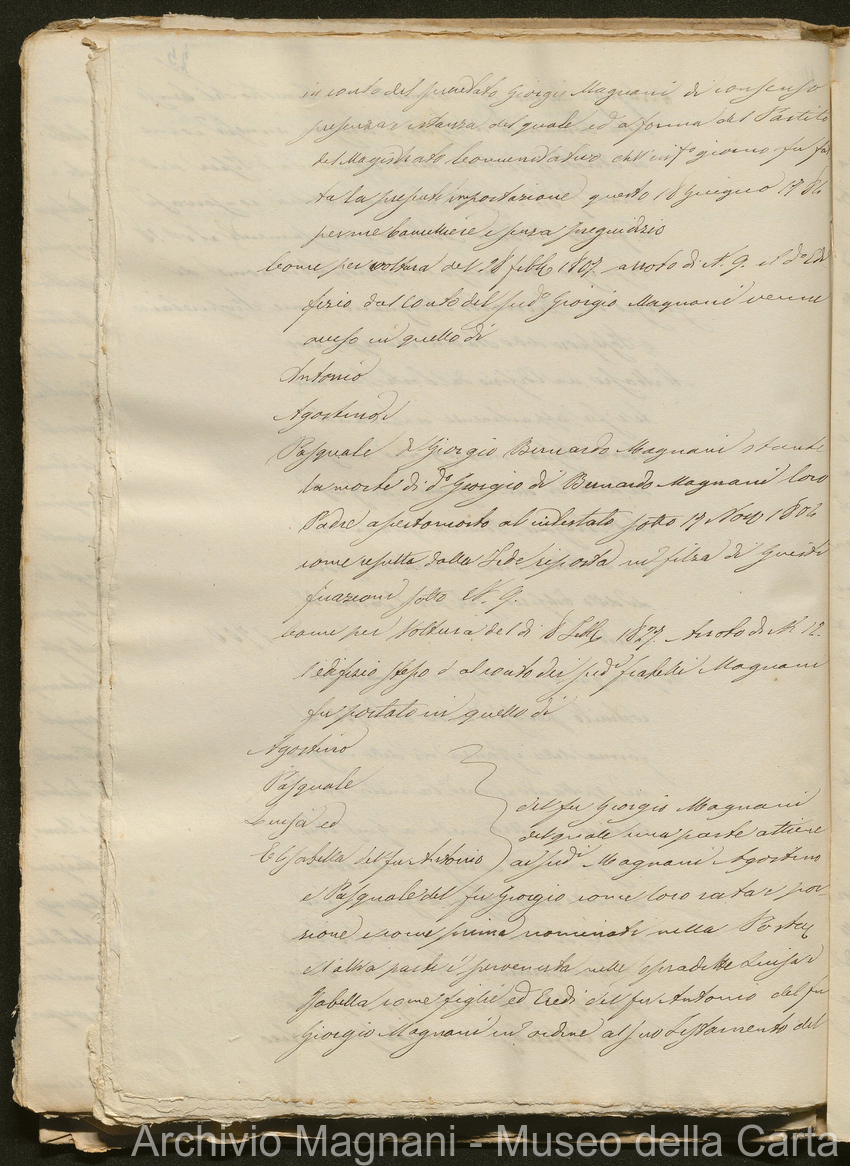 in conto del predetto Giorgio Magnani di consenso
presenza e istanza del quale, ed a forma del Partito
del Magistrato Comunitativo dell' inf.º giorno fu fat
ta la preposta impostazione questo 18 Giugno 1786
per me Cancelliere e senza pregiudizio
Come per voltura del 28 febb. 1807. arroto di N. 9. il d.º Edi
fizio dal Conto del sud.º Giorgio Magnani venne
acceso in quello di
Antonio
Agostino, e
Pasquale di Giorgio Bernardo Magnani stante
la morte di d.º Giorgio di Bernardo Magnani loro
Padre aperto morto ab intestato sotto 17 Nov. 1806
come resulta dalla Fede riposta in filza di Giusti
ficazioni sotto N. 9.
Come per Voltura del dì 8 Sett. 1827. Arroto di N. 12.
l'edifizio stesso dal conto dei sud.i fratelli Magnani
fu portato in quello di
Agostino
Pasquale
Luisa ed
Elisabetta del fu Antonio
del fu Giorgio Magnani
del quale una parte attiene
ai sud.i Magnani Agostino
e Pasquale del fu Giorgio come loro rata e por
zione e come prima nominati nella Posta
e l'altra parte è pervenuta nelle sopradette Luisa e
Isabella come figlie ed Eredi del fu Antonio del fu
Giorgio Magnani in ordine al suo Testamento del
Archivio Magnani - Museo della Carta